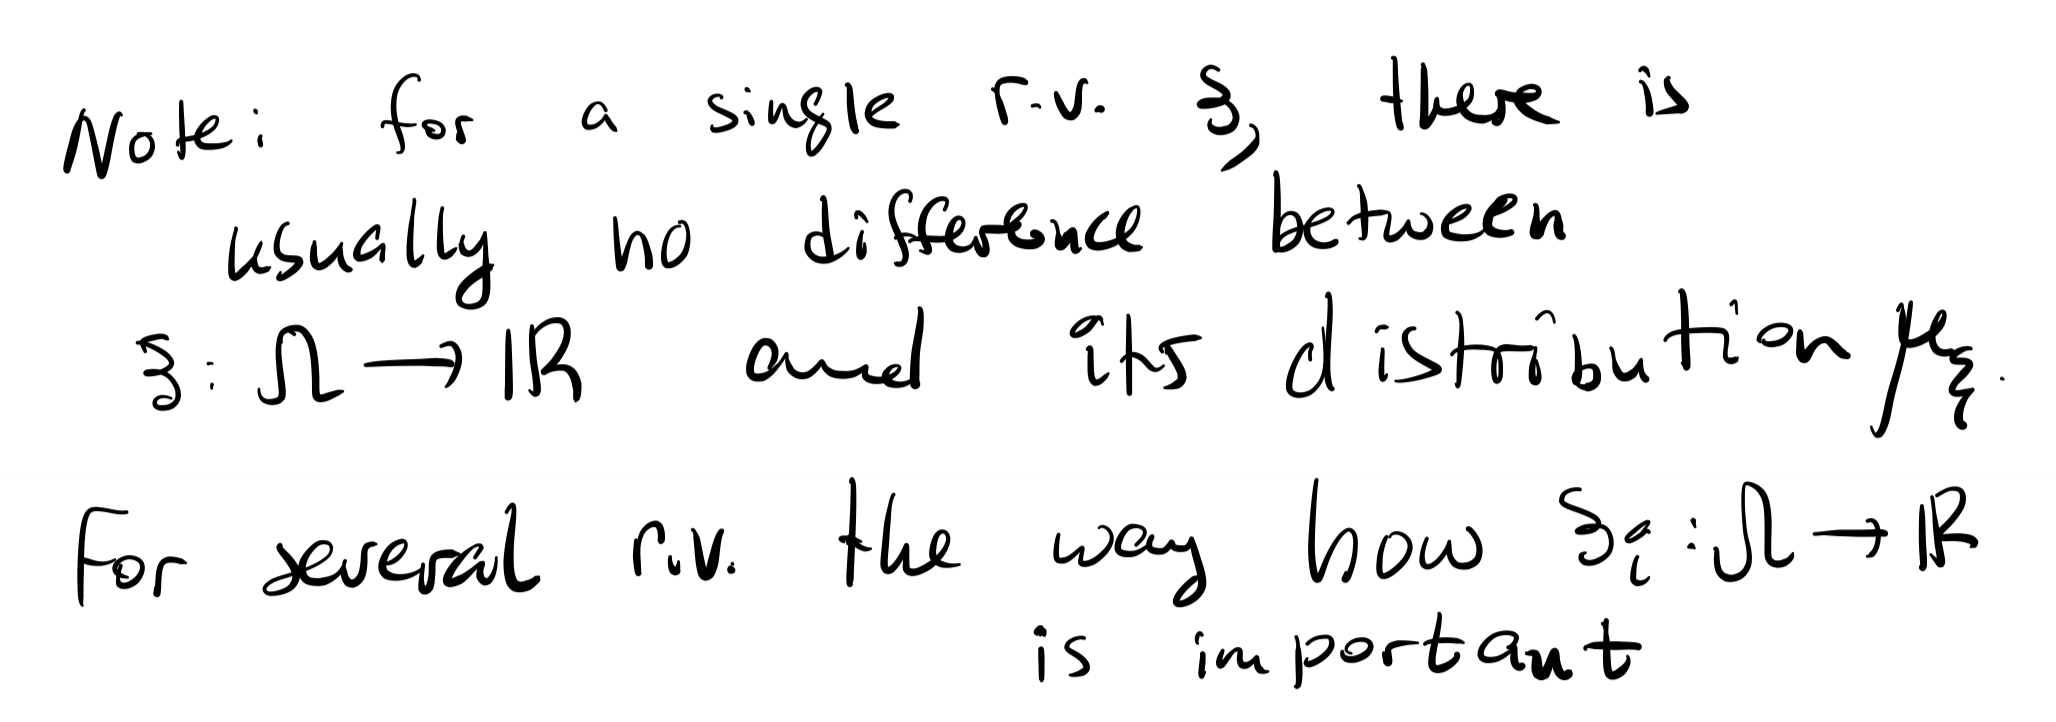 Note: for a single r.v. ξ, there is
usually no difference between
ξ: Ω → ℝ and its distribution μ_ξ.
For several r.v. the way how ξ_i : Ω → ℝ
is important